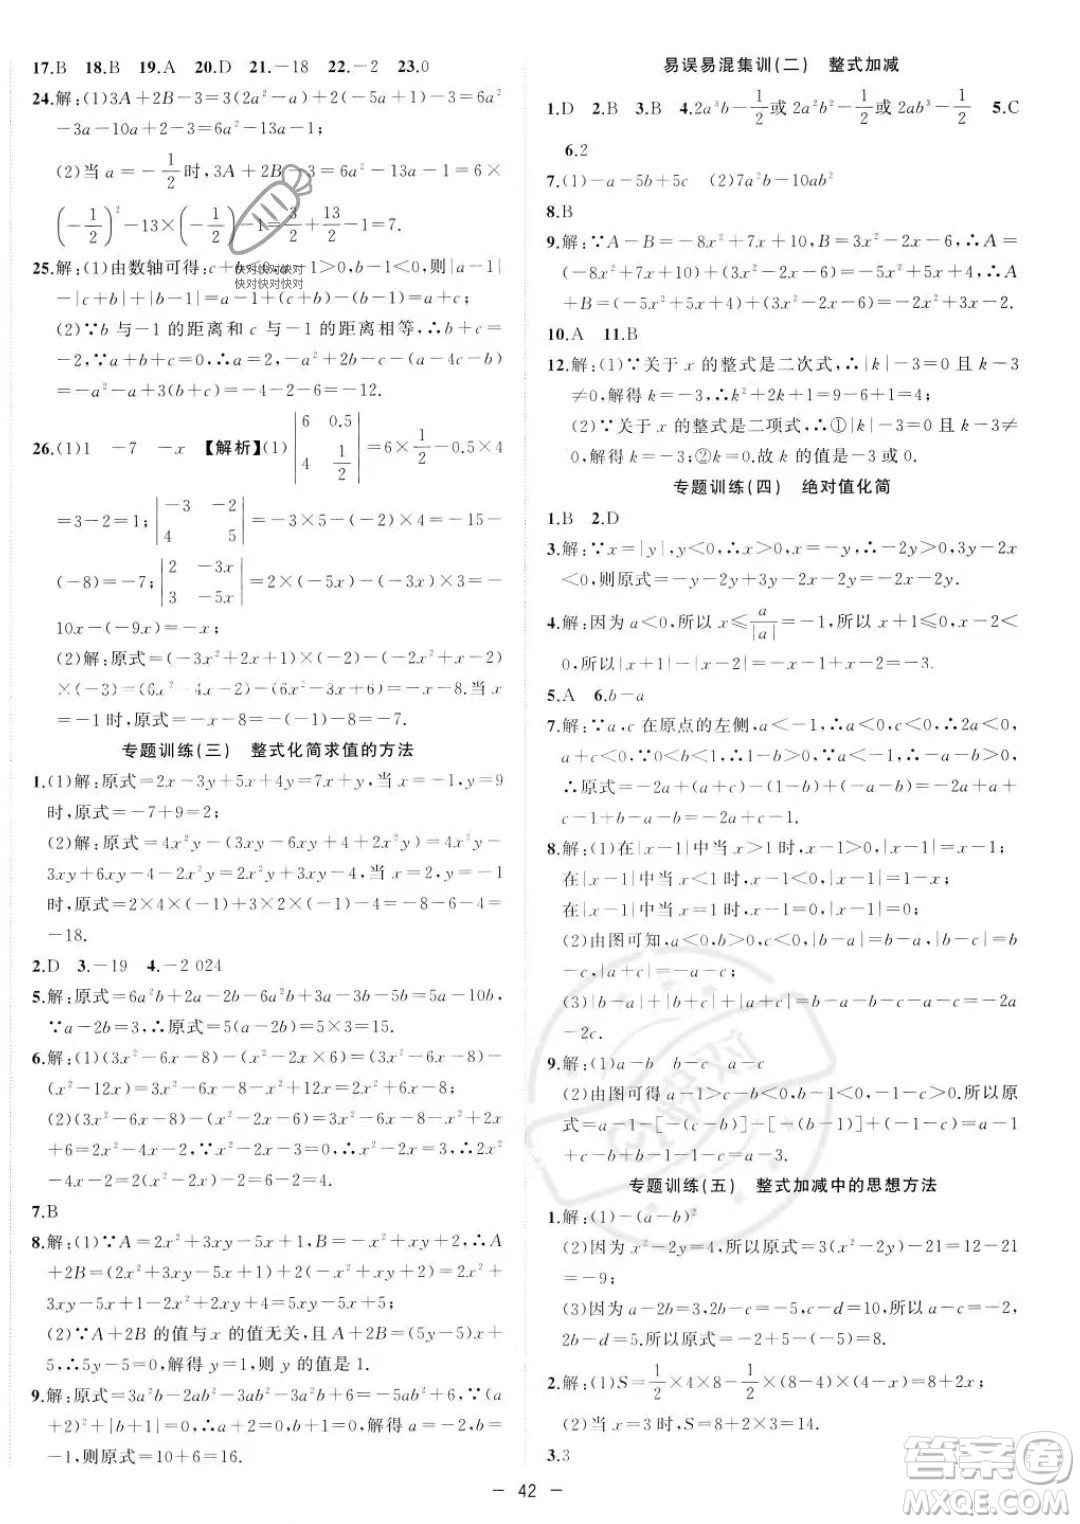 17.B 18.B 19.A 20.D 21.-18 22.-2 23.0
24.解:(1)3A+2B-3=3(2a²-a)+2(-5a+1)-3=6a²
-3a-10a+2-3=6a²-13a-1;
(2)当 a=-1/2时,3A+2B-3=6a²-13a-1=6×
(-1/2)²-13×(-1/2)-1=3/2+13/2-1=7.
25.解:(1)由数轴可得:c+b<0,a-1>0,b-1<0,则|a-1|
-|c+b|+|b-1|=a-1+(c+b)+1-b=a+c;
(2)∵b 与-1 的距离和 c 与-1 的距离相等,∴b+c=
-2,∵a+b+c=0,∴a=2,∴-a²+2b-a-(b-4c-b)
=-a²-a+2(b+c)=-4-2-6=-12.
26.(1)1 -7 -x 【解析】(1)|6 0.5; 4 1/2|=6×1/2-0.5×4
=3-2=1;|-3 -2; 4 5|=-3×5-(-2)×4=-15-
(-8)=-7;|2 -3x; 3 -5x|=2×(-5x)-(-3x)×3=-
10x-(-9x)=-x;
(2)解:原式=(-3x²+2x+1)×(-2)-(-2x²+x-2)
×(-3)=(6x²-4x-2)-(6x²-3x+6)=-x-8.当 x
=-1时,原式=-x-8=-(-1)-8=-7.
专题训练(三) 整式化简求值的方法
1.(1)解:原式=2x-3y+5x+4y=7x+y,当 x=-1,y=9
时,原式=-7+9=2;
(2)解:原式=4x²y-(3xy-6xy+4+2x²y)=4x²y-
3xy+6xy-4-2x²y=2x²y+3xy-4,当 x=2,y=-1
时,原式=2×4×(-1)+3×2×(-1)-4=-8-6-4=
-18.
2.D 3.-19 4.-2 024
5.解:原式=6a²b+2a-2b-6a²b+3a-8b=5a-10b,
∵a-2b=3,∴原式=5(a-2b)=5×3=15.
6.解:(1)(3x²-6x-8)-(x²-2x×6)=(3x²-6x-8)-
(x²-12x)=3x²-6x-8-x²+12x=2x²+6x-8;
(2)(3x²-6x-8)-(x²-2x-6)=3x²-6x-8-x²+2x
+6=2x²-4x-2,∵x²-2x-3=0,∴x²-2x=3,∴2x²
-4x-2=2(x²-2x)-2=6-2=4.
7.B
8.解:(1)∵A=2x²+3xy-2x+1,B=-x²+xy+x,∴A
+2B=(2x²+3xy-5x+1)+2(-x²+xy+2)=2x²+
3xy-5x+1-2x²+2xy+4=5xy-5x+5;
(2)∵A+2B 的值与 x 的值无关,且 A+2B=5xy-5x+
5,∴5y-5=0,解得 y=1,则 y 的值是 1.
9.解:原式=3a²b-2ab²-3ab²-3a²b+6=-2ab²+6,∵(a
+2)²+|b+1|=0,∴a+2=0,b+1=0,∴a=-2,b=
-1,则原式=10+6=16.
易误易混集训(二) 整式加减
1.D 2.B 3.B 4.2a³b-1/2或 2a²b²-1/2或 2ab³-1/2 5.C
6.2
7.(1)-a-5b+5c (2)7a²b-10ab²
8.B
9.解:∵A-B=-8x²+7x+10,B=3x²-2x-6,∴A=
(-8x²+7x+10)+(3x²-2x-6)=-5x²+5x+4,∴A
+B=(-5x²+5x+4)+(3x²-2x-6)=-2x²+3x-2.
10.A 11.B
12.解:(1)∵关于 x 的整式是二次式,∴|k|-3=0 且 k-3
≠0,解得 k=-3,∴k²+2k+1=9-6+1=4;
(2)∵关于 x 的整式是二项式,∴①|k|-3=0且 k-3≠
0,解得 k=-3;②k=0.故 k 的值是-3 或 0.
专题训练(四) 绝对值化简
1.B 2.D
3.解:∵x=|y|,y<0,∴x>0,x=-y,∴-2y>0,3y-2x
<0,则原式=-x-y-2y+3y-2x=-2x-2y+2y=-2x.
4.解:因为 a<0,所以 x≤a/|a|=-1,所以 x+1≤0,x-2<
0,所以|x+1|-|x-2|=-x-1+x-2=-3.
5.A 6.b-a
7.解:∵a,c 在原点的左侧,a<-1,∴a<0,c<0,∴2a<
0,a+c<0,∵0<b<1,∴1-b>0,∵a<-1,∴-a-b>0,
∴原式=-2a+(a+c)-(1-b)+(-a-b)=-2a+a+
c-1+b-a-b=-2a+c-1.
8.解:(1)在|x-1|中当 x>1 时,x-1>0,∴|x-1|=x-1;
在|x-1|中当 x<1 时,x-1<0,∴|x-1|=1-x;
在|x-1|中当 x=1 时,x-1=0,∴|x-1|=0;
(2)由图可知,a<0,b>0,c<0,|b-a|=b-a,|b-c|=b
-c,|b+c|=-b-c,|c-a|=c-a;
(3)|b-a|+|b+c|-|b-c|=b-a-b-c-b+c=-2a
-2c.
9.解:(1)a-b b-c a-c
(2)由图可得 a-1>0,b-1<0,b-a<0,c<0,所以原
式=a-1-[-(b-1)]+[-(b-1)]+(-1-c)=a-1+
b-a-b+1+c-b=a-3.
专题训练(五) 整式加减中的思想方法
1.解:(1)-(a-b)²
(2)因为 x²-2y=4,所以原式=3(x²-2y)-21=12-21
=-9;
(3)因为 a-2b=3,2b-c=-5,c-d=10,所以 a-c=-2,
2b-d=5,所以原式=-2+5-(-5)=8.
2.解:(1)S=1/2×4×4+1/2×4×x=8+2x;
(2)当 x=3时,S=8+2×3=14.
3.3
— 42 —
快对快对快对
快对快对快对
答案圈
MXQE.COM